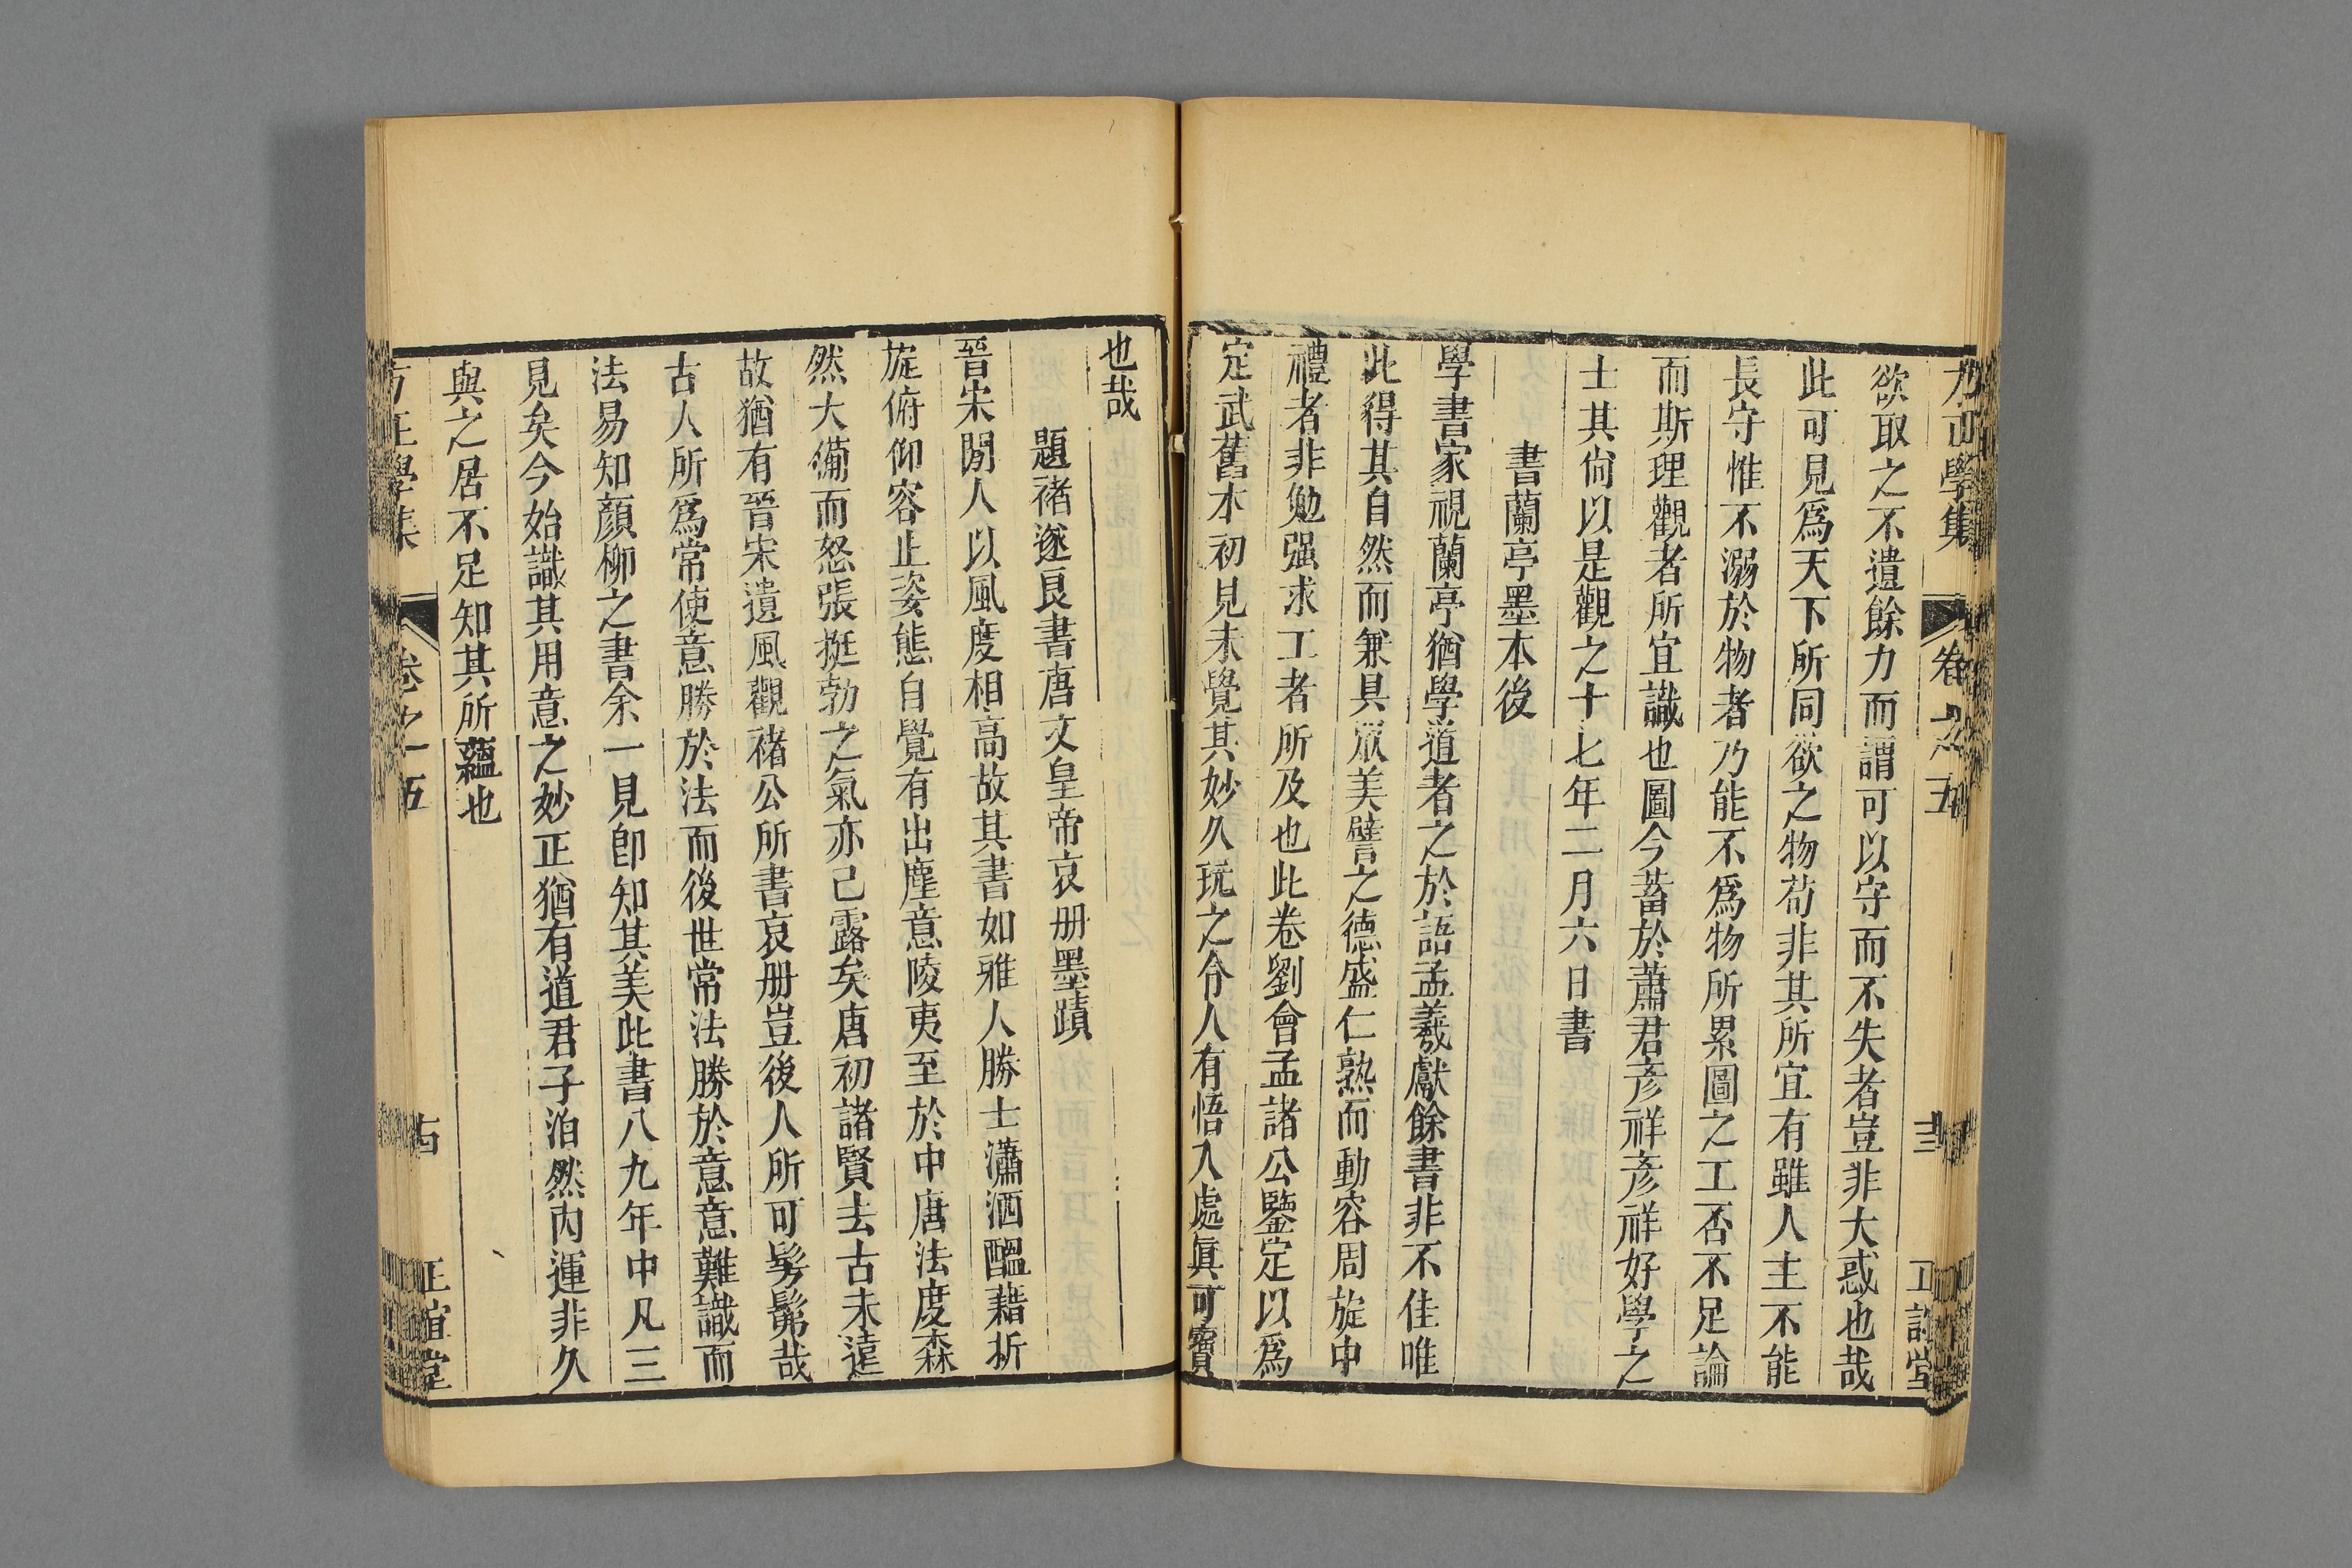 欲取之不遺餘力而謂可以守而不失者豈非大惑也哉
此可見爲天下所同欲之物苟非其所宜有雖人主不能
長守惟不溺於物者乃能不爲物所累圖之工否不足論
而斯理觀者所宜識也圖今蓄於蕭君彥祥彥祥好學之
士其尙以是觀之十七年二月六日書
書蘭亭墨本後
學書家視蘭亭猶學道者之於語孟羲獻餘書非不佳唯
此得其自然而兼具眾美譬之德盛仁熟而動容周旋中
禮者非勉强求工者所及也此卷劉會孟諸公鑒定以爲
定武舊本初見未覺其妙久玩之令人有悟入處眞可寶
也哉
題褚遂良書唐文皇帝哀册墨蹟
晉宋間人以風度相高故其書如雅人勝士瀟洒醞藉折
旋俯仰容止姿態自覺有出塵意陵夷至於中唐法度森
然大備而怒張挺勃之氣亦已露矣唐初諸賢去古未遠
故猶有晉宋遺風觀褚公所書哀册豈後人所可髣髴哉
古人所爲常使意勝於法而後世常法勝於意意難識而
法易知顏柳之書余一見卽知其美此書八九年中凡三
見矣今始識其用意之妙正猶有道君子泊然內運非久
與之居不足知其所蘊也
卷之十五
正誼堂